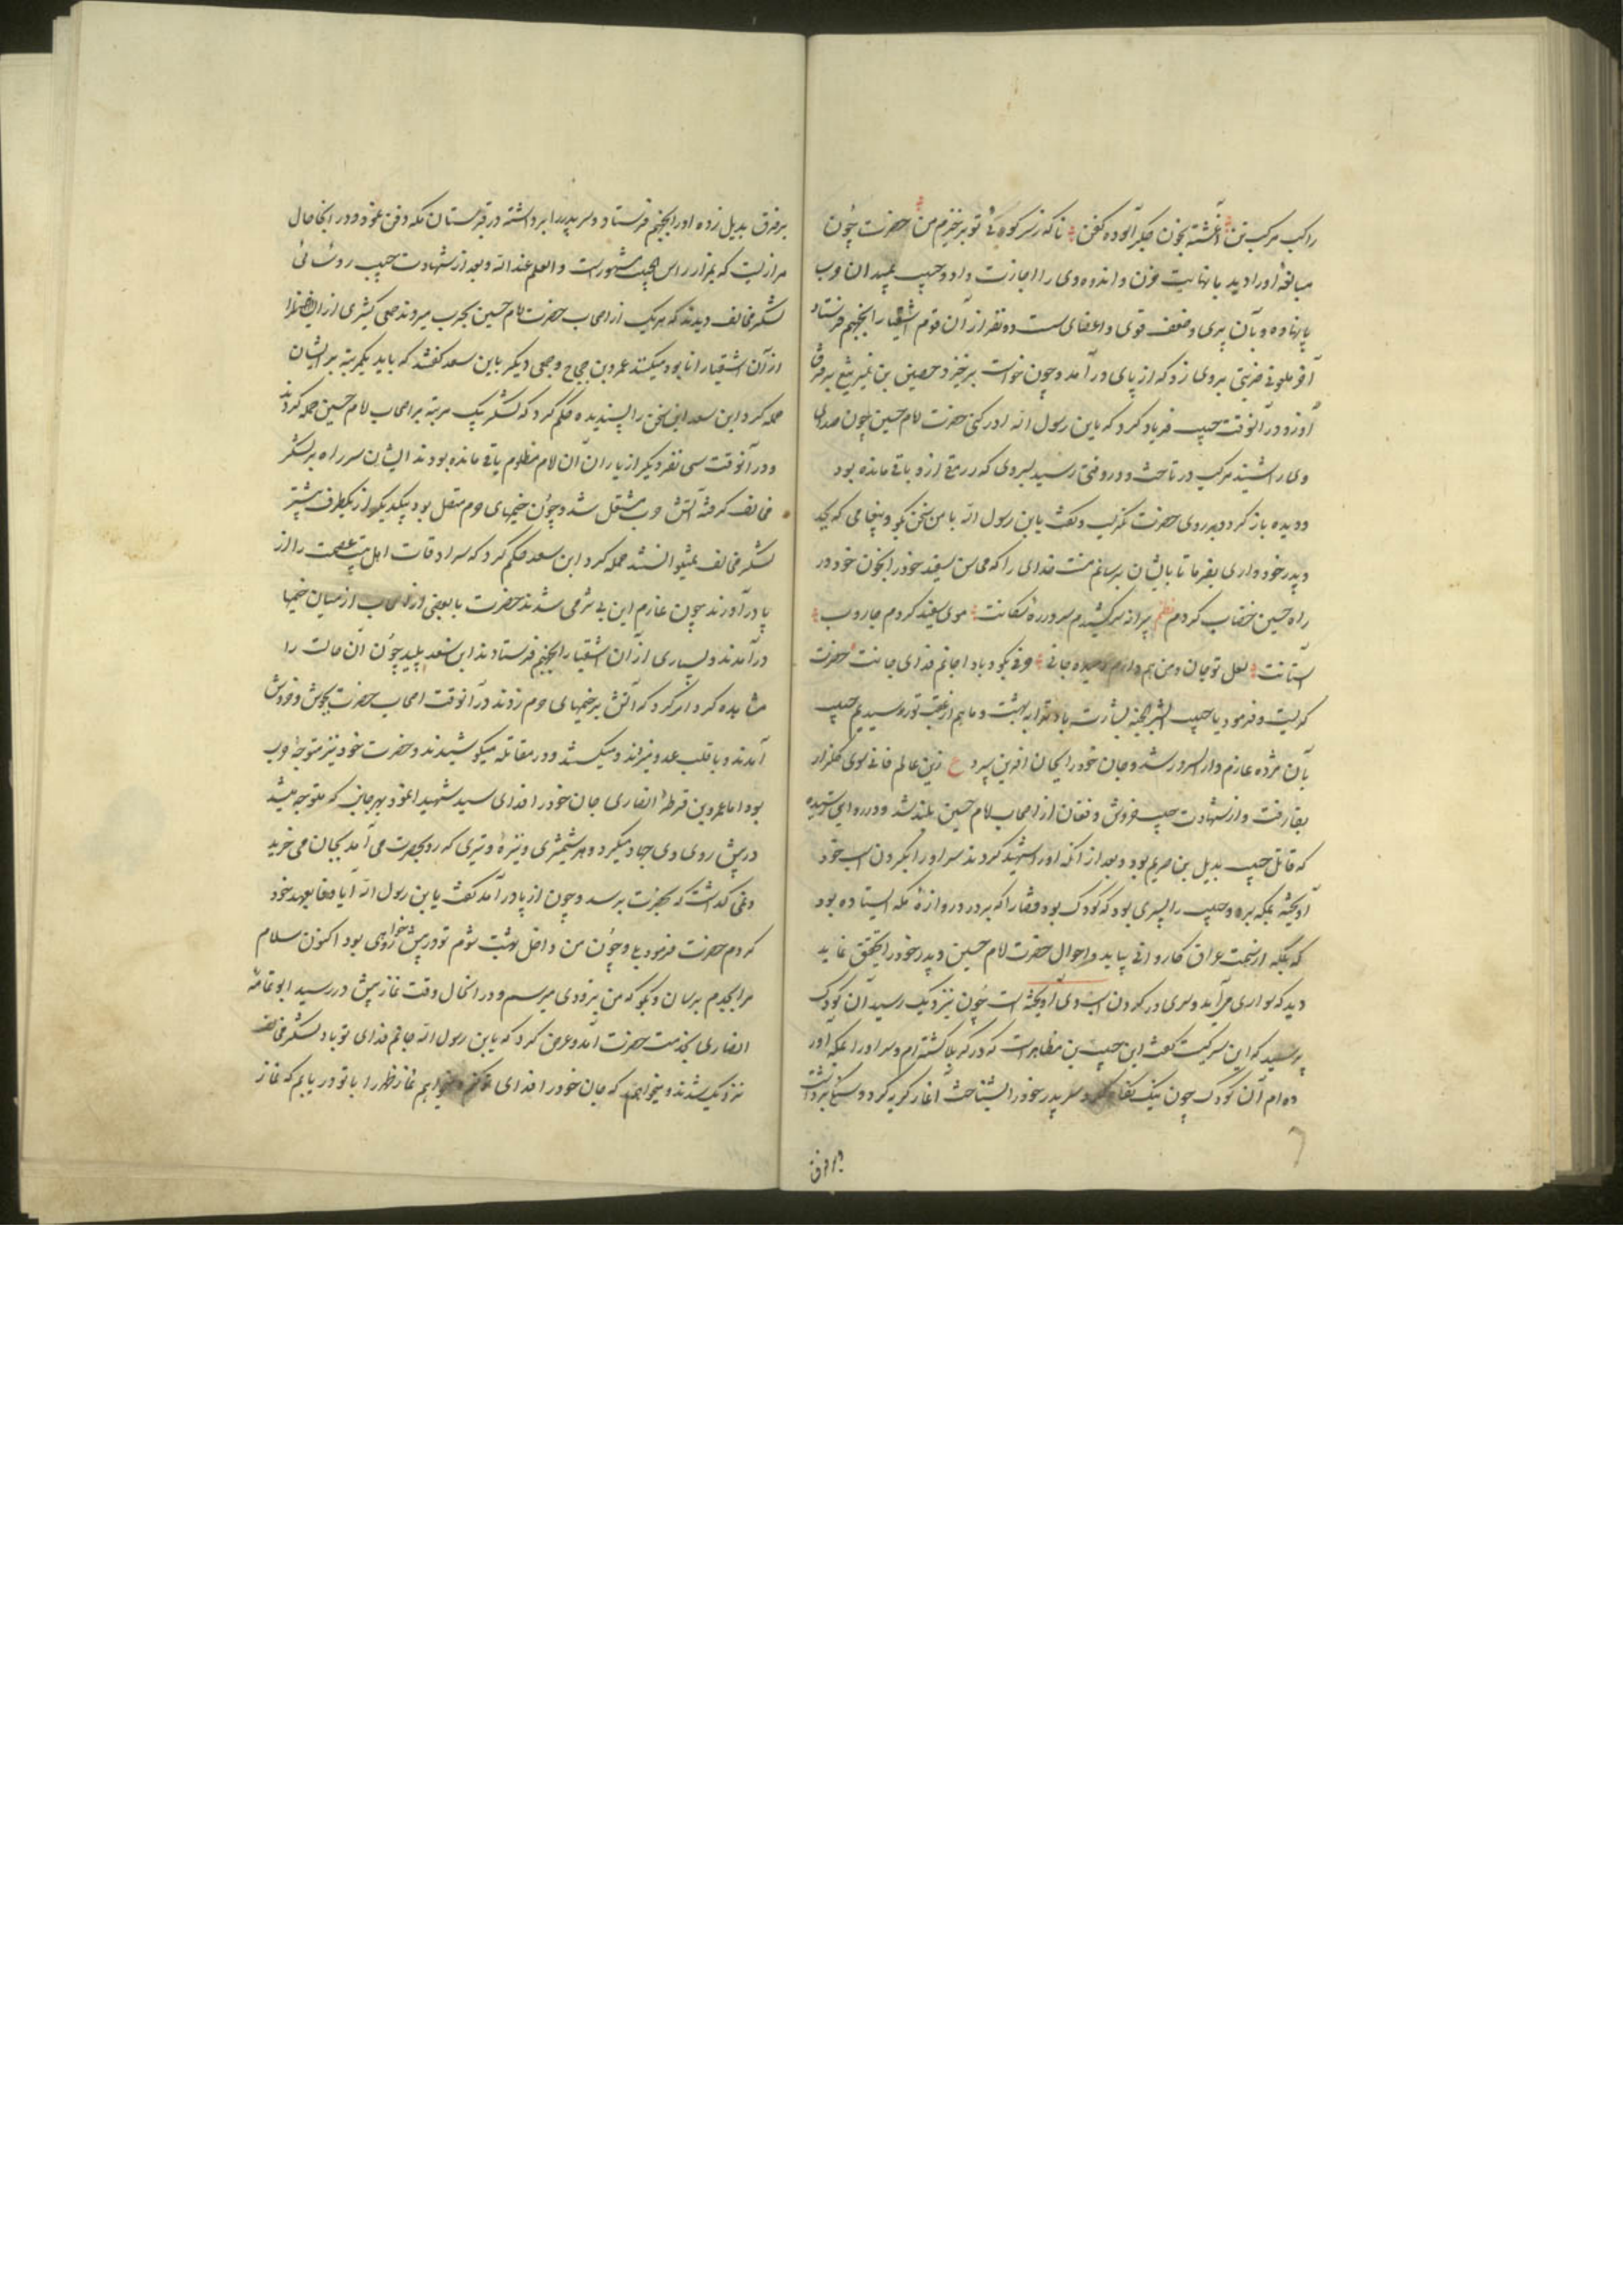 راکب مرکب تن آغشته بخون جگر آلوده کفن تا که ز سر کوی تو برخیزم من حضرت چون
مبالغهٔ او را دید با نهایت حزن و اندوه وی را اجازت داد و حبیب بمیدان حرب
پا نهاد و بآن پیری و ضعف قوی و اعضای سست ده نفر از آن قوم اشقیا را بجهنم فرستاد
آخر ملعونی ضربتی بر وی زد که از پای در آمد و چون خواست برخیزد حصین بن نمیر تیغ بر فرق
او زد در آنوقت حبیب فریاد کرد که یابن رسول الله ادرکنی حضرت امام حسین چون صدای
وی را شنید مرکب در تاخت و در وقتی رسید بسروی که رمقی ازو باقی مانده بود
و دیده باز کرد و بروی حضرت نگریست و گفت یابن رسول الله با من سخن بگو و پیغامی که بجد
و پدر خود داری بفرما تا بایشان برسانم منت خدای را که محاسن سفید خود را بخون خود در
راه حسین خضاب کردم نظم پیرانه سر کشیدم سر در ره مکانت موی سفید کردم جاروب
آستانت لعل تو جان و من هم دارم جانی حرفی بگو و بادا جانم فدای جانت حضرت
گریست و فرمود یا حبیب ابشر بالجنة بشارت باد ترا به بهشت و ما هم از عقب تو رسیدیم حبیب
بآن مژده عازم دار السرور شد و جان خود را بجان آفرین سپرد ع زین عالم فانی سوی گلزار
بقا رفت و از شهادت حبیب خروش و فغان از اصحاب امام حسین بلند شد و در روایی رسیده
که قاتل حبیب بدیل بن صریم بود و بعد از آنکه او را شهید کردند سر او را بگردن اسب خود
آویخته بمکه برد و حبیب را پسری بود که کودک بود قضا را که بر در دروازهٔ مکه ایستاده بود
که بمکه از سمت عراق کاروانی بیاید و احوال حضرت امام حسین و پدر خود را تحقیق نماید
دید که سواری می‌آید و سری در گردن اسب وی آویخته است چون نزدیک رسید آن کودک
پرسید که این سر کیست گفت این حبیب بن مظاهر است که در کربلا کشته‌ام و سر او را بمکه آور
ده‌ام آن کودک چون نیک نگاه کرد و سر پدر خود را بشناخت آغاز گریه کرد و سنگ برداشت
بر فرق
بر فرق بدیل زده او را بجهنم فرستاد و سر پدر را برداشته در قبرستان مکه دفن نمود و در آنجا حال
مزاریست که بمزار راس الحبیب مشهور است و العلم عند الله و بعد از شهادت حبیب روسائی
لشکر مخالف دیدند که هر یک از اصحاب حضرت امام حسین بحرب میروند جمعی کثیری از
از آن اشقیا را نابود میکنند عمرو بن حجاج و جمعی دیگر باین سعد گفتند که باید یکمرتبه بر ایشان
حمله کرد ابن سعد این سخن را پسندیده حکم کرد که لشکر یک مرتبه بر اصحاب امام حسین حمله کردند
و در آنوقت سی نفر دیگر از یاران آن امام مظلوم باقی مانده بودند ایشان سر راه بر لشکر
مخالف گرفته آتش حرب مشتعل شد و چون خیمهای حرم متصل بود بیکدیگر از یکطرف بیشتر
لشکر مخالف نمیتوانستند حمله کرد ابن سعد حکم کرد که سرادقات اهل بیت عصمت را از
پا در آورند چون عازم این بی شرمی شدند حضرت با بعضی از اصحاب از میان خیمها
در آمدند و بسیاری از آن اشقیا را بجهنم فرستادند ابن سعد پلید چون آن حالت را
مشاهده کرد امر کرد که آتش بر خیمهای حرم زدند در آنوقت اصحاب حضرت بجوش و خروش
آمدند و با قلب عدو میزدند و میکشتند و در مقاتله میکوشیدند و حضرت خود نیز متوجه حرب
بود اما عمرو بن قرطهٔ انصاری جان خود را فدای سید شهدا نمود بهر جانب که متوجه میشد
در پیش روی وی جهاد میکرد و هر شمشیری و نیزه و تیری که رو بحضرت می‌آمد بجان می‌خرید
و نمی گذاشت که بحضرت برسد و چون از پا در آمد گفت یابن رسول الله آیا وفا بعهد خود
کردم حضرت فرمود بلی و چون من داخل بهشت شوم تو در پیش خواهی بود اکنون سلام
مرا بجدم برسان و بگو که من بزودی میرسم و در اینحال وقت نماز پیش در رسید ابو ثمامهٔ
انصاری بخدمت حضرت آمد و عرض کرد که یابن رسول الله جانم فدای تو باد لشکر مخالف
نزدیک شدند و میخواهم که جان خود را فدای تو کنم و میخواهم نماز ظهر را با تو دریابم که نماز